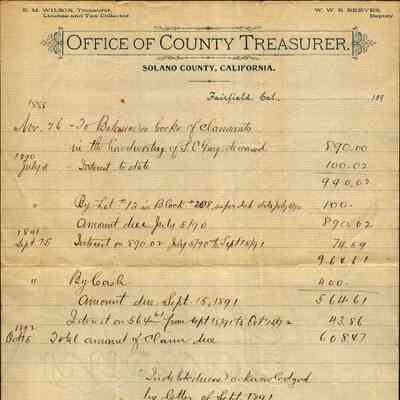 E. M. WILSON, Treasurer,
License and Tax Collector
W. W. S. REEVES,
Deputy.
OFFICE OF COUNTY TREASURER,
SOLANO COUNTY, CALIFORNIA.
Fairfield, Cal. 189
1888
Nov. 26 - To Balance in books of Claimants
in the handwriting of S. C. Gray deceased 890.00
1890
July 5 - Interest to date 100.02
990.02
" By Lot #12 in Block #208, 100.-
Amount due July 5/90 890.02
1891
Sept. 15 Interest on 890.02 July 5/90 to Sept 15/91 74.59
964.61
" By Cash 400.
Amount due Sept. 15, 1891 564.61
1892
Oct 15 Interest on 564.61 from Sept 15/91 to Oct 43.86
Total amount of Claim due 608.47
"Indebtedness" acknowledged
by letter of Sept. 1891